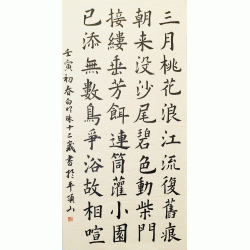 三月桃花浪江流復舊痕
朝来没沙尾碧色動柴門
接縷垂芳餌連筒灌小園
已添無數鳥爭浴故相喧
壬寅初春 十二歲書於平頂山